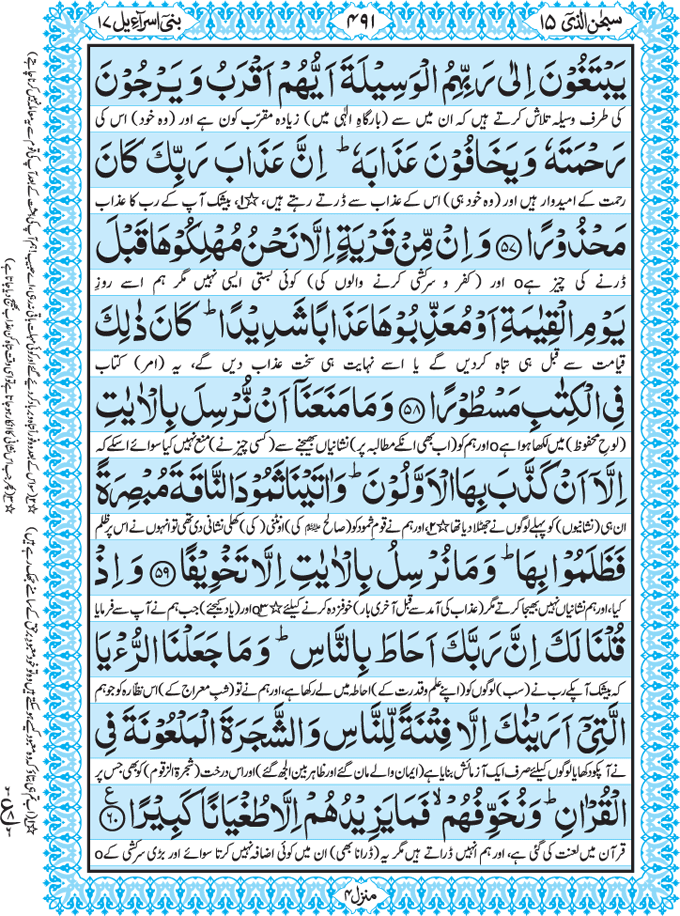 سبحٰن الذی ۱۵
۴۹۱
بنیٓ اسرآءیل ۱۷
يَبْتَغُوْنَ اِلٰى رَبِّهِمُ الْوَسِيْلَةَ اَيُّهُمْ اَقْرَبُ وَ يَرْجُوْنَ
کی طرف وسیلہ تلاش کرتے ہیں کہ ان میں سے (بارگاہِ الٰہی میں) زیادہ مقرّب کون ہے اور (وہ خود) اس کی
رَحْمَتَهٗ وَ يَخَافُوْنَ عَذَابَهٗ ؕ اِنَّ عَذَابَ رَبِّكَ كَانَ
رحمت کے امیدوار ہیں اور (وہ خود ہی) اس کے عذاب سے ڈرتے رہتے ہیں، ☆۱، بیشک آپ کے رب کا عذاب
مَحْذُوْرًا ﴿۵۷﴾ وَ اِنْ مِّنْ قَرْيَةٍ اِلَّا نَحْنُ مُهْلِكُوْهَا قَبْلَ
ڈرنے کی چیز ہےo اور (کفر و سرکشی کرنے والوں کی) کوئی بستی ایسی نہیں مگر ہم اسے روزِ
يَوْمِ الْقِيٰمَةِ اَوْ مُعَذِّبُوْهَا عَذَابًا شَدِيْدًا ؕ كَانَ ذٰلِكَ
قیامت سے قبل ہی تباہ کردیں گے یا اسے نہایت ہی سخت عذاب دیں گے، یہ (امر) کتاب
فِى الْكِتٰبِ مَسْطُوْرًا ﴿۵۸﴾ وَ مَا مَنَعَنَاۤ اَنْ نُّرْسِلَ بِالْاٰيٰتِ
(لوحِ محفوظ) میں لکھا ہوا ہےo اور ہم کو (اب بھی انکے مطالبہ پر) نشانیاں بھیجنے سے (کسی چیز نے) منع نہیں کیا سوائے اسکے کہ
اِلَّاۤ اَنْ كَذَّبَ بِهَا الْاَوَّلُوْنَ ؕ وَ اٰتَيْنَا ثَمُوْدَ النَّاقَةَ مُبْصِرَةً
ان ہی (نشانیوں) کو پہلے لوگوں نے جھٹلا دیا تھا ☆۲، اور ہم نے قومِ ثمود کو (صالح علیہ السلام کی) اونٹنی (کی) کھلی نشانی دی تھی تو انہوں نے اس پر ظلم
فَظَلَمُوْا بِهَا ؕ وَ مَا نُرْسِلُ بِالْاٰيٰتِ اِلَّا تَخْوِيْفًا ﴿۵۹﴾ وَ اِذْ
کیا، اور ہم نشانیاں نہیں بھیجا کرتے مگر (عذاب کی آمد سے قبل آخری بار) خوفزدہ کرنے کیلئے ☆۳o اور (یاد کیجئے) جب ہم نے آپ سے فرمایا
قُلْنَا لَكَ اِنَّ رَبَّكَ اَحَاطَ بِالنَّاسِ ؕ وَ مَا جَعَلْنَا الرُّءْيَا
کہ بیشک آپکے رب نے (سب) لوگوں کو (اپنے علم و قدرت کے) احاطہ میں لے رکھا ہے، اور ہم نے تو (شبِ معراج کے) اس نظارہ کو جو ہم
الَّتِىْۤ اَرَيْنٰكَ اِلَّا فِتْنَةً لِّلنَّاسِ وَ الشَّجَرَةَ الْمَلْعُوْنَةَ فِى
نے آپکو دکھایا لوگوں کیلئے صرف ایک آزمائش بنایا ہے (ایمان والے مان گئے اور ظاہر بین الجھ گئے) اور اس درخت (شجرۃ الزقوم) کو بھی جس پر
الْقُرْاٰنِ ؕ وَ نُخَوِّفُهُمْ ۙ فَمَا يَزِيْدُهُمْ اِلَّا طُغْيَانًا كَبِيْرًا ﴿۶۰﴾ ع
قرآن میں لعنت کی گئی ہے، اور ہم انہیں ڈراتے ہیں مگر یہ (ڈرانا بھی) ان میں کوئی اضافہ نہیں کرتا سوائے اور بڑی سرکشی کے o
منزل ۴